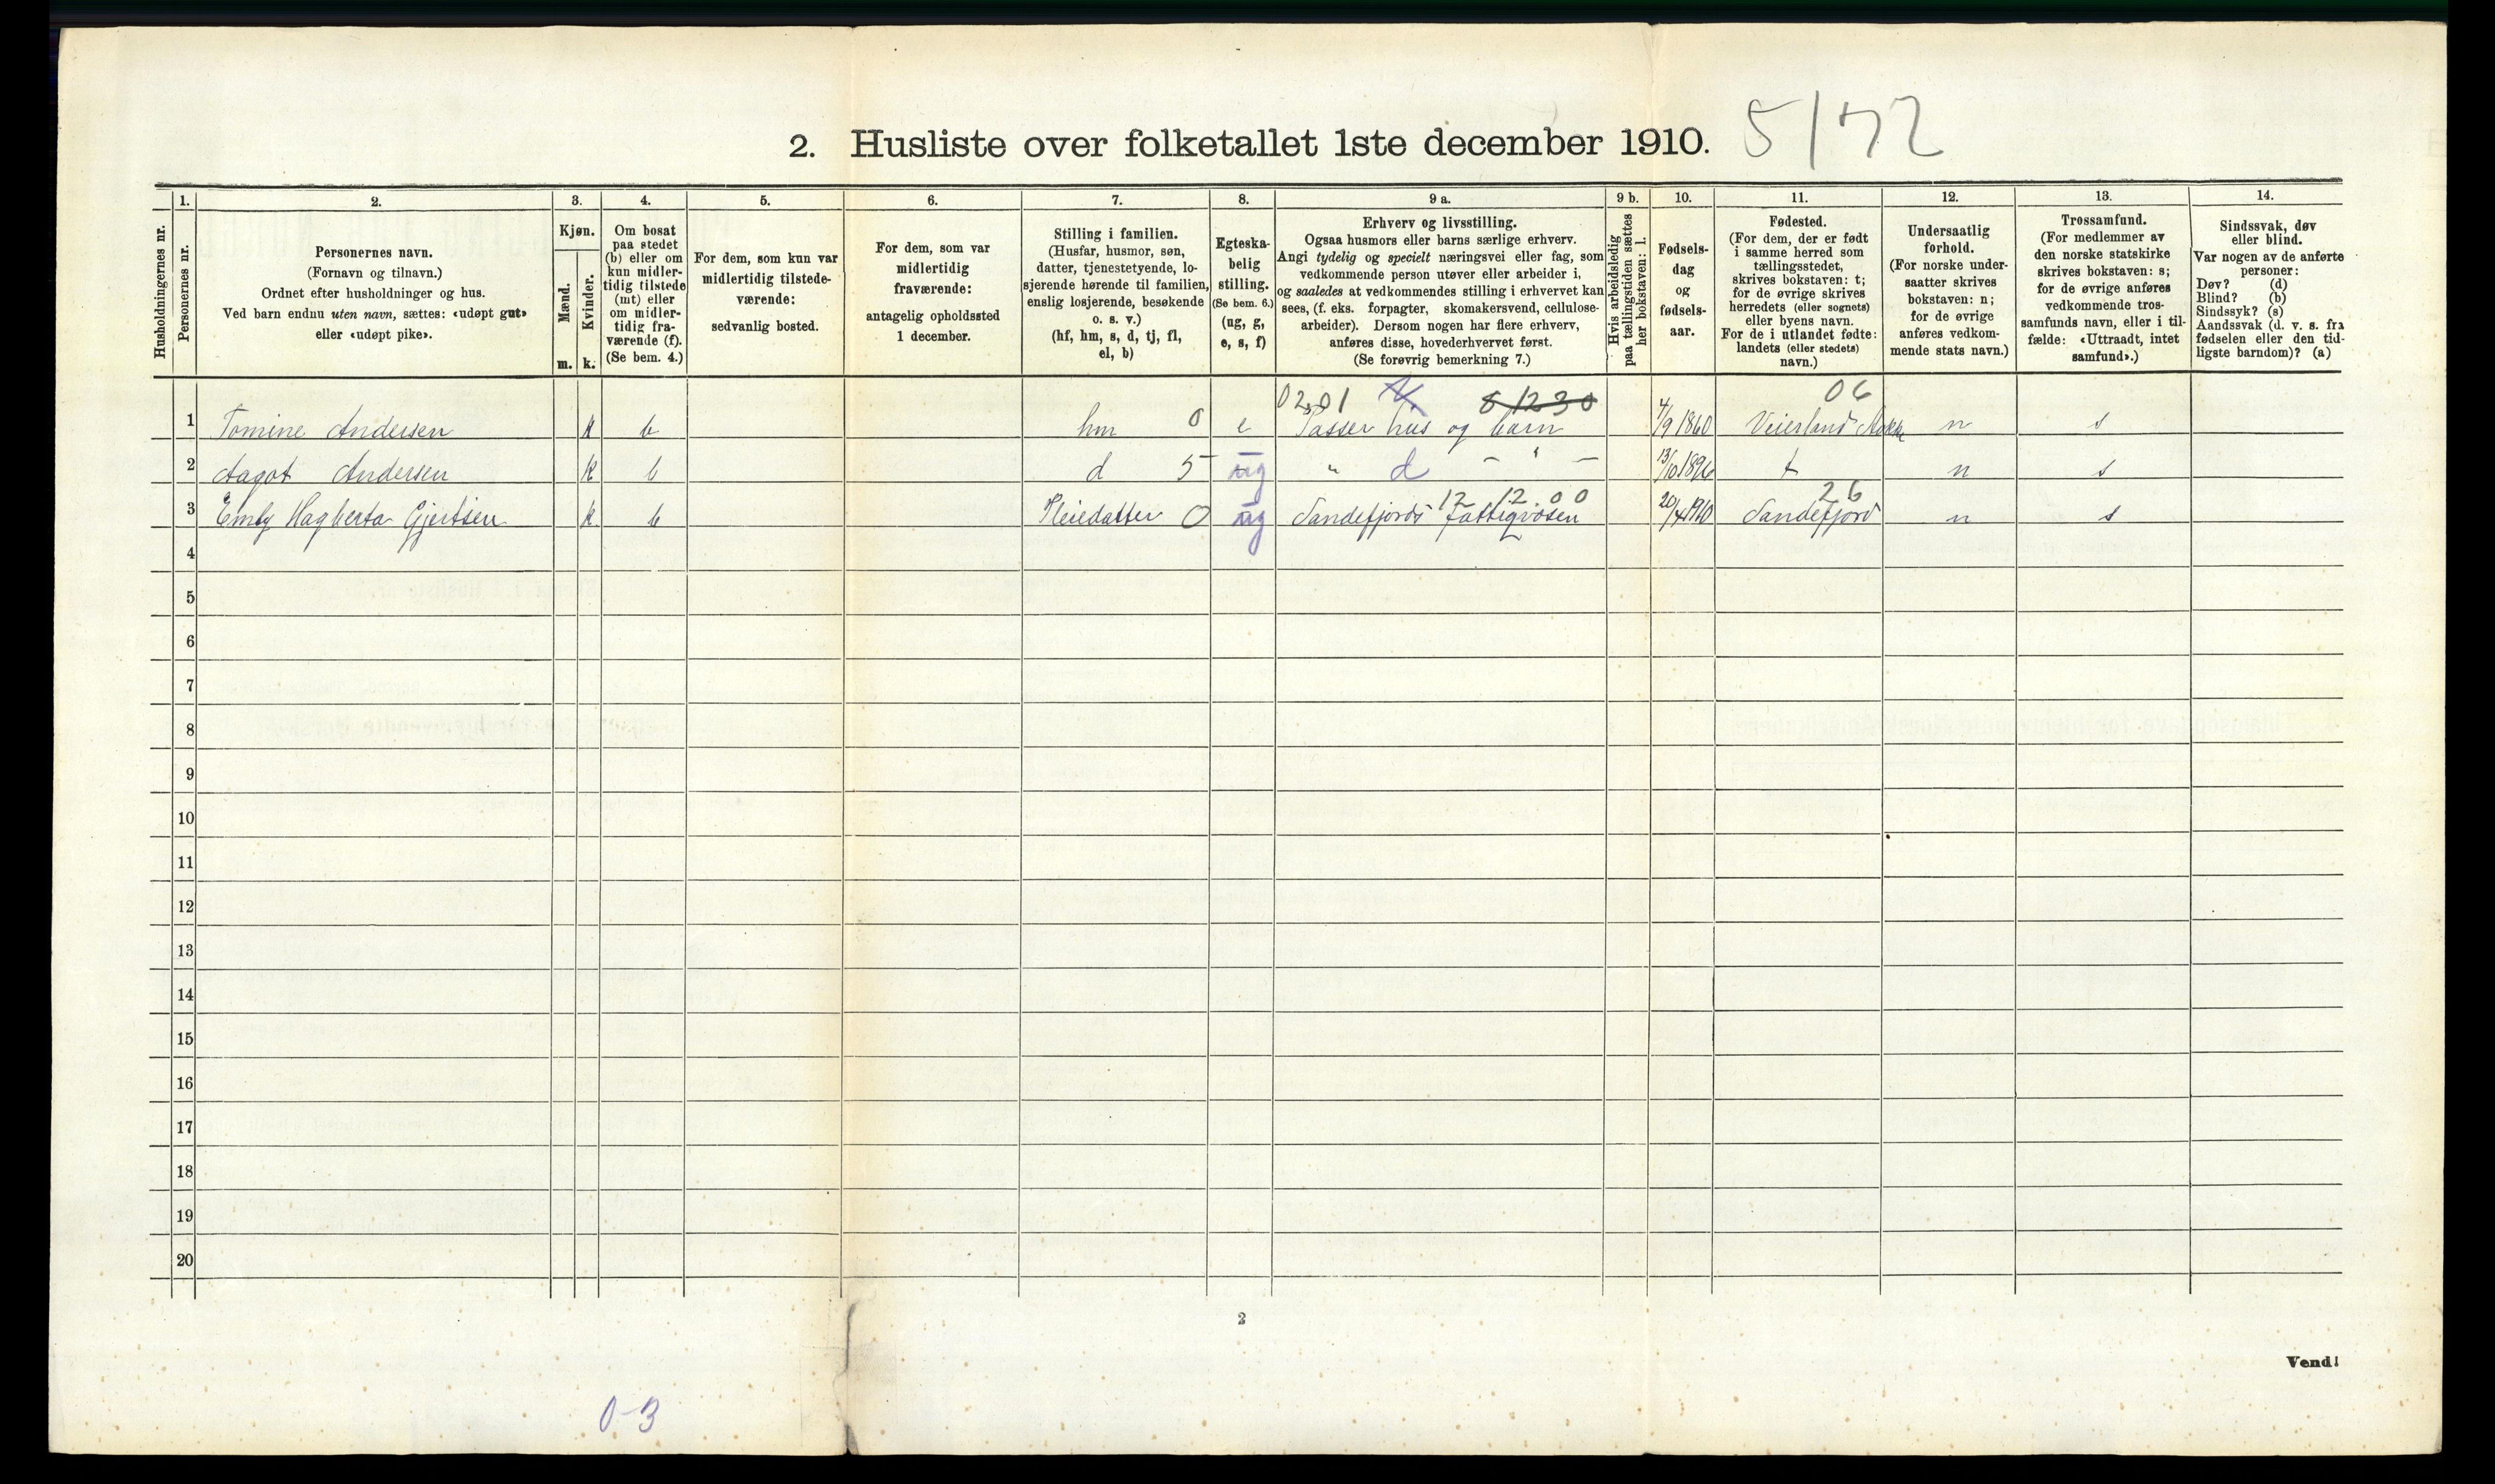 2. Husliste over folketallet 1ste december 1910. 5/72
Husholdningernes nr.
1.
Personernes nr.
2.
Personernes navn.
(Fornavn og tilnavn.)
Ordnet efter husholdninger og hus.
Ved barn endnu uten navn, sættes: «udøpt gut»
eller «udøpt pike».
3.
Kjøn.
Mænd.
Kvinder.
m. k.
4.
Om bosat
paa stedet
(b) eller om
kun midler-
tidig tilstede
(mt) eller
om midler-
tidig fra-
værende (f).
(Se bem. 4.)
5.
For dem, som kun var
midlertidig tilstede-
værende:
sedvanlig bosted.
6.
For dem, som var
midlertidig
fraværende:
antagelig opholdssted
1 december.
7.
Stilling i familien.
(Husfar, husmor, søn,
datter, tjenestetyende, lo-
sjerende hørende til familien,
enslig losjerende, besøkende
o. s. v.)
(hf, hm, s, d, tj, fl,
el, b)
8.
Egteska-
belig
stilling.
(Se bem. 6.)
(ug, g,
e, s, f)
9 a.
Erhverv og livsstilling.
Ogsaa husmors eller barns særlige erhverv.
Angi tydelig og specielt næringsvei eller fag, som
vedkommende person utøver eller arbeider i,
og saaledes at vedkommendes stilling i erhvervet kan
sees, (f. eks. forpagter, skomakersvend, cellulose-
arbeider). Dersom nogen har flere erhverv,
anføres disse, hovederhvervet først.
(Se forøvrig bemerkning 7.)
9 b.
Hvis arbeidsledig
paa tællingstiden sættes
her bokstaven: l.
10.
Fødsels-
dag
og
fødsels-
aar.
11.
Fødested.
(For dem, der er født
i samme herred som
tællingsstedet,
skrives bokstaven: t;
for de øvrige skrives
herredets (eller sognets)
eller byens navn.
For de i utlandet fødte:
landets (eller stedets)
navn.)
12.
Undersaatlig
forhold.
(For norske under-
saatter skrives
bokstaven: n;
for de øvrige
anføres vedkom-
mende stats navn.)
13.
Trossamfund.
(For medlemmer av
den norske statskirke
skrives bokstaven: s;
for de øvrige anføres
vedkommende tros-
samfunds navn, eller i til-
fælde: «Uttraadt, intet
samfund».)
14.
Sindssvak, døv
eller blind.
Var nogen av de anførte
personer:
Døv? (d)
Blind? (b)
Sindssyk? (s)
Aandssvak (d. v. s. fra
fødselen eller den tid-
ligste barndom)? (a)
0201 81230 06
1 Tomine Andersen k b hm 0 e Passer hus og barn 4/9 1860 Veierland n s
2 Aagot Andersen k b d 5 ug " d - " - 13/10 1896 t n s
12 12.00 26
3 Emly Hagberta Gjertsen k b Pleiedatter 0 ug Sandefjords fattigvæsen 20/4 1910 Sandefjord n s
4
5
6
7
8
9
10
11
12
13
14
15
16
17
18
19
20
2
Vend!
0-3